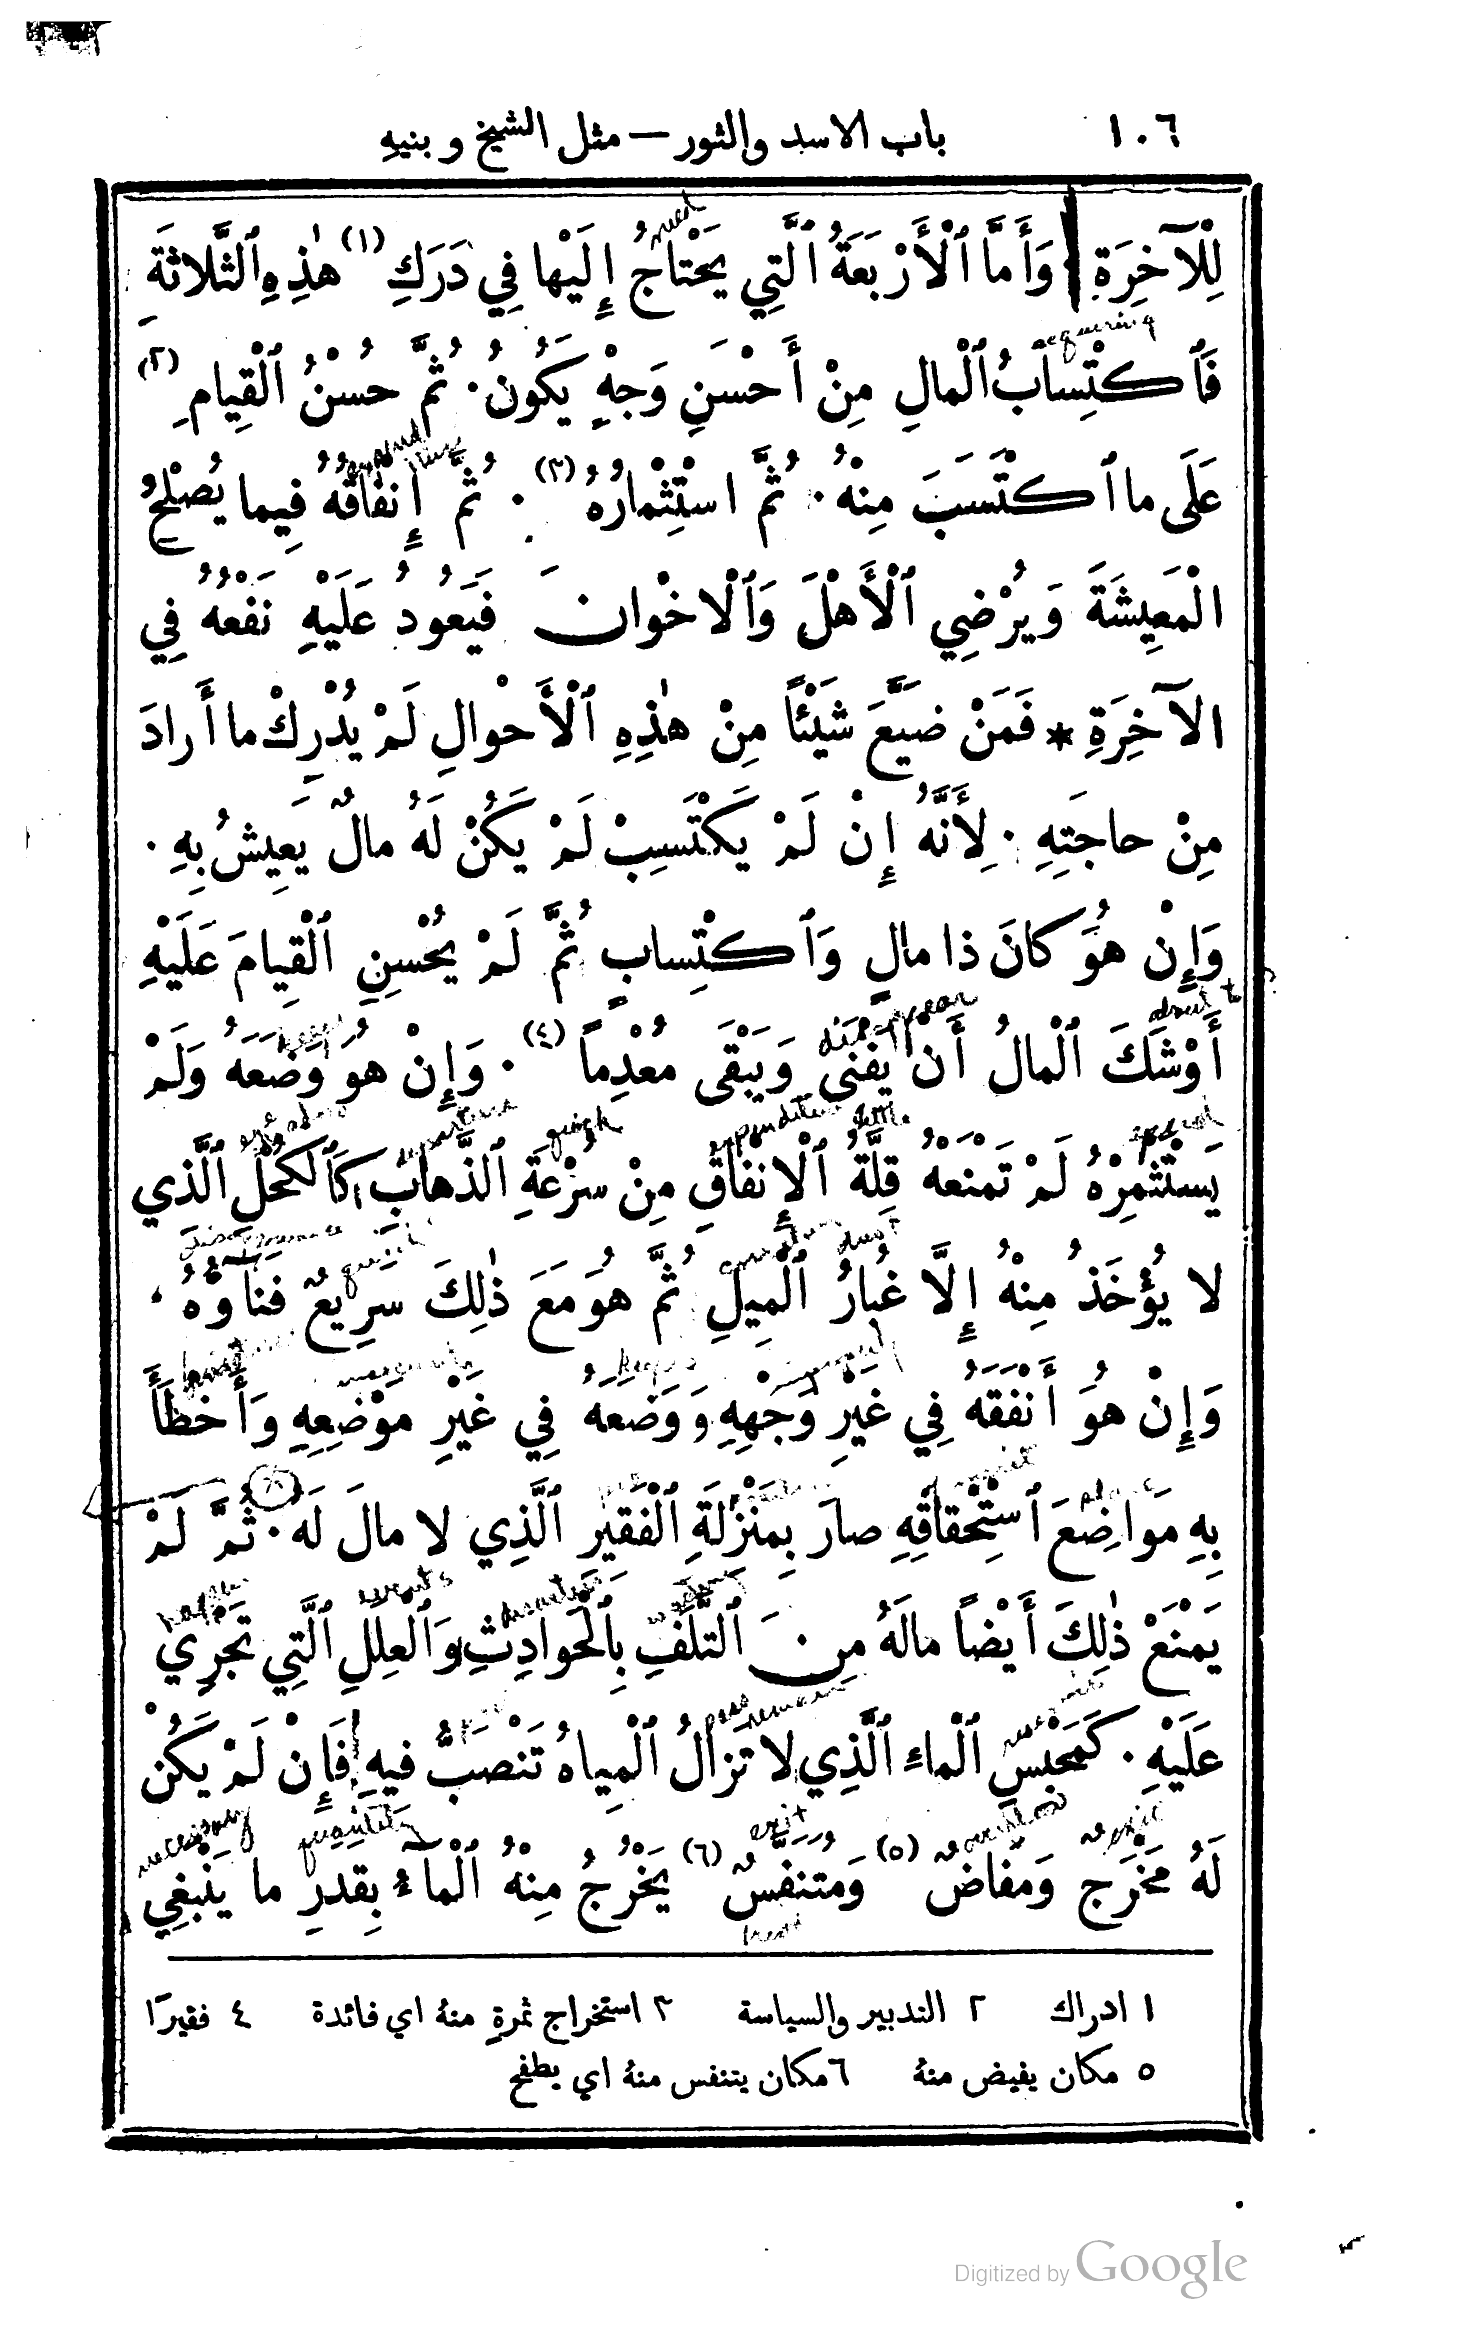 ١٠٦ باب الاسد والثور — مثل الشيخ وبنيهِ
need
لِلْآخِرَةِ وَأَمَّا ٱلْأَرْبَعَةُ ٱلَّتِي يَحْتاجُ إِلَيْها فِي دَرَكِ (١) هٰذِهِ ٱلثَّلاثَةِ
acquering
فَٱكْتِسابُ ٱلْمالِ مِنْ أَحْسَنِ وَجْهٍ يَكُونُ. ثُمَّ حُسْنُ ٱلْقِيامِ (٢)
عَلَى ما ٱكْتَسَبَ مِنْهُ. ثُمَّ اسْتِثْمارُهُ (٣). ثُمَّ إِنْفاقُهُ فِيما يُصْلِحُ
الْمَعِيشَةَ وَيُرْضِي ٱلْأَهْلَ وَٱلْاخْوانَ فَيَعُودُ عَلَيْهِ نَفْعُهُ فِي
الآخِرَةِ * فَمَنْ ضَيَّعَ شَيْئًا مِنْ هٰذِهِ ٱلْأَحْوالِ لَمْ يُدْرِكْ ما أَرادَ
مِنْ حاجَتِهِ. لِأَنَّهُ إِنْ لَمْ يَكْتَسِبْ لَمْ يَكُنْ لَهُ مالٌ يَعِيشُ بِهِ.
وَإِنْ هُوَ كانَ ذا مالٍ وَٱكْتِسابٍ ثُمَّ لَمْ يُحْسِنِ ٱلْقِيامَ عَلَيْهِ
about to disappear keep
أَوْشَكَ ٱلْمالُ أَنْ يَفْنَى وَيَبْقَى مُعْدِماً (٤). وَإِنْ هُوَ وَضَعَهُ وَلَمْ
expend little expenditure quick departure
يَسْتَثْمِرْهُ لَمْ تَمْنَعْهُ قِلَّةُ ٱلْإِنْفاقِ مِنْ سُرْعَةِ ٱلذَّهابِ كَٱلْكُحْلِ ٱلَّذِي
dust quick
لا يُؤْخَذُ مِنْهُ إِلَّا غُبارُ ٱلْمِيلِ ثُمَّ هُوَ مَعَ ذٰلِكَ سَرِيعٌ فَنَآؤُهُ.
keeps
وَإِنْ هُوَ أَنْفَقَهُ فِي غَيْرِ وَجْهِهِ وَوَضَعَهُ فِي غَيْرِ مَوْضِعِهِ وَأَخْطَأَ
place
بِهِ مَواضِعَ ٱسْتِحْقاقِهِ صارَ بِمَنْزِلَةِ ٱلْفَقِيرِ ٱلَّذِي لا مالَ لَه. ثُمَّ لَمْ
events happen
يَمْنَعْ ذٰلِكَ أَيْضاً مالَهُ مِنَ ٱلتَّلَفِ بِٱلْحَوادِثِ وَٱلْعِلَلِ ٱلَّتِي تَجْرِي
remain
عَلَيْهِ. كَمَحْبِسِ ٱلْماءِ ٱلَّذِي لا تَزالُ ٱلْمِياهُ تَنْصَبُّ فِيهِ فَإِنْ لَمْ يَكُنْ
exit overflow exit quantity necessary
لَهُ مَخْرَجٌ وَمَفاضٌ (٥) وَمُتَنَفَّسٌ (٦) يَخْرُجُ مِنْهُ ٱلْمآءُ بِقَدرِ ما يَنْبَغِي
vent
١ ادراك ٢ التدبير والسياسة ٣ استخراج ثمرةٍ منهُ اي فائدة ٤ فقيرًا
٥ مكان يفيض منهُ ٦ مكان يتنفس منهُ اي يطفح
Digitized by Google